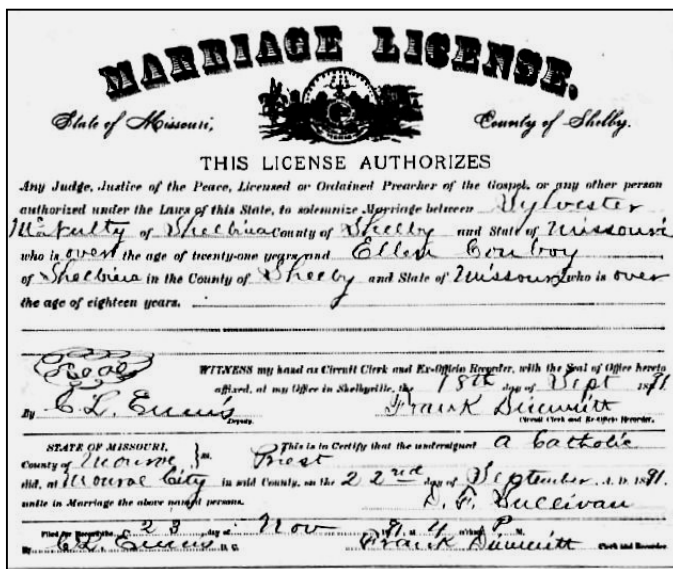 MARRIAGE LICENSE.
State of Missouri, County of Shelby.
THIS LICENSE AUTHORIZES
Any Judge, Justice of the Peace, Licensed or Ordained Preacher of the Gospel, or any other person
authorized under the Laws of this State, to solemnize Marriage between Sylvester
McNulty of Shelbina County of Shelby and State of Missouri
who is over the age of twenty-one years and Ellen Conboy
of Shelbina in the County of Shelby and State of Missouri who is over
the age of eighteen years.
Seal
WITNESS my hand as Circuit Clerk and Ex-Officio Recorder, with the Seal of Office hereto
affixed, at my Office in Shelbyville, the 18th day of Sept 1891.
By C L. Ennis Deputy. Frank Dimmitt
Circuit Clerk and Ex-Officio Recorder.
STATE OF MISSOURI, ss. This is to Certify that the undersigned A Catholic
County of Monroe Priest
did, at Monroe City in said County, on the 22nd day of September A. D. 1891.
unite in Marriage the above named persons. D. F. Sullivan
Filed for Record the 23 day of Nov 1891 at 4 o'clock P M.
By C L Ennis D. C. Frank Dimmitt Clerk and Recorder